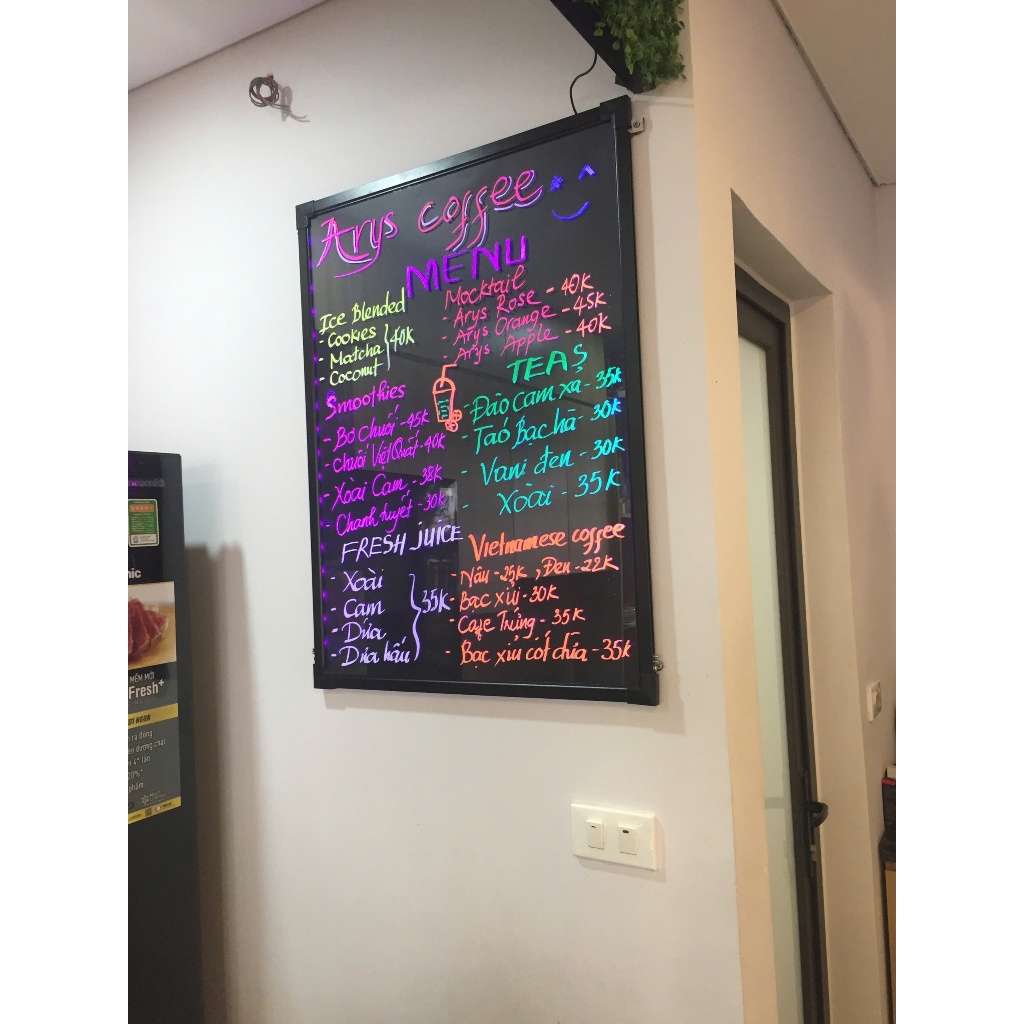 Arys coffee
MENU
Ice Blended
- Cookies
- Matcha
- Coconut
40K
Smoothies
- Bơ chuối - 45K
- Chuối Việt Quất - 40K
- Xoài Cam - 38K
- Chanh tuyết - 30K
FRESH JUICE
- Xoài
- Cam
- Dứa
- Dưa hấu
35K
Mocktail
- Arys Rose - 40K
- Arys Orange - 45K
- Arys Apple - 40K
TEAS
- Đào cam xả - 35K
- Táo Bạc hà - 30K
- Vani đen - 30K
- Xoài - 35K
Vietnamese coffee
- Nâu - 25K, Đen - 22K
- Bạc xỉu - 30K
- Cafe Trứng - 35K
- Bạc xỉu cốt dừa - 35K
nic
MỀM MỚI
Fresh+
NGON
ra đông
dương chất
4* lần
20%*
phẩm